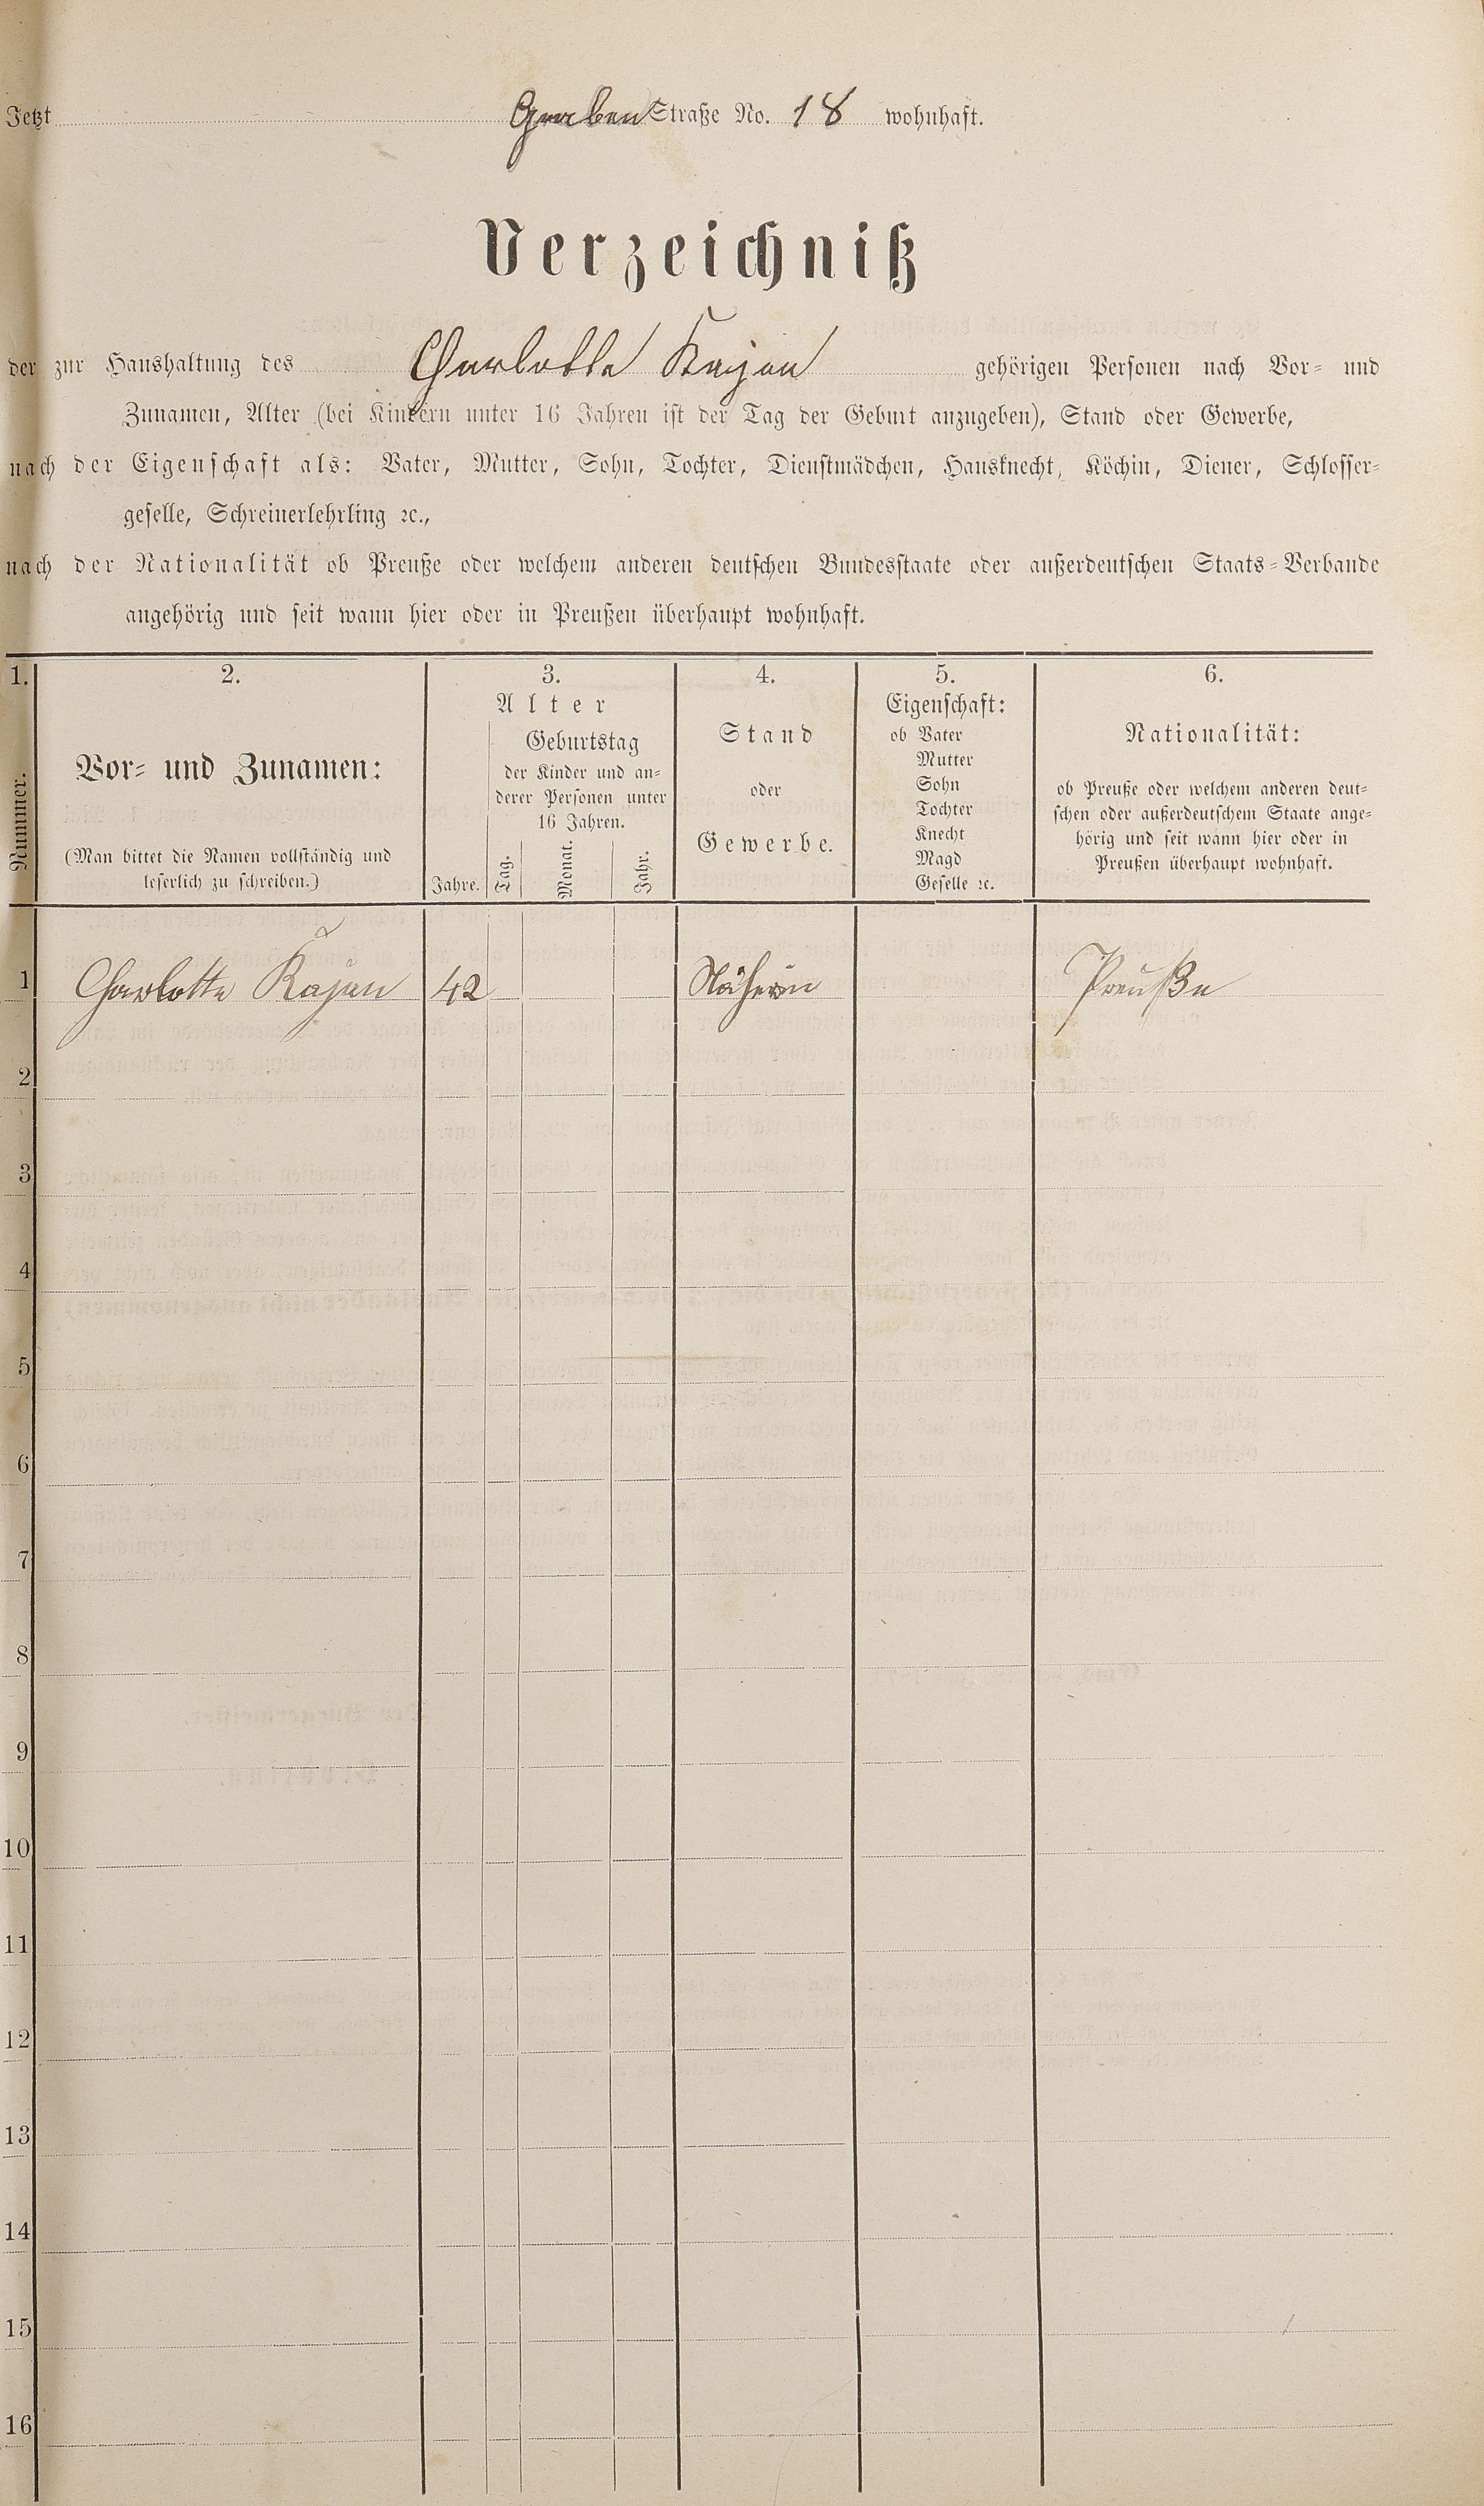 Jetzt Graben Straße No. 18 wohnhaft.
Verzeichniß
der zur Haushaltung des Charlotte Kajan gehörigen Personen nach Vor- und
Zunamen, Alter (bei Kindern unter 16 Jahren ist der Tag der Geburt anzugeben), Stand oder Gewerbe,
nach der Eigenschaft als: Vater, Mutter, Sohn, Tochter, Dienstmädchen, Hausknecht, Köchin, Diener, Schlosser-
geselle, Schreinerlehrling ꝛc.,
nach der Nationalität ob Preuße oder welchem anderen deutschen Bundesstaate oder außerdeutschen Staats-Verbande
angehörig und seit wann hier oder in Preußen überhaupt wohnhaft.
1.
Nummer.
2.
Vor- und Zunamen:
(Man bittet die Namen vollständig und
leserlich zu schreiben.)
3.
Alter
Jahre.
Geburtstag
der Kinder und an-
derer Personen unter
16 Jahren.
Tag.
Monat.
Jahr.
4.
Stand
oder
Gewerbe.
5.
Eigenschaft:
ob Vater
Mutter
Sohn
Tochter
Knecht
Magd
Geselle ꝛc.
6.
Nationalität:
ob Preuße oder welchem anderen deut-
schen oder außerdeutschem Staate ange-
hörig und seit wann hier oder in
Preußen überhaupt wohnhaft.
1 Charlotte Kajan 42 Näherin Preuße
2
3
4
5
6
7
8
9
10
11
12
13
14
15
16